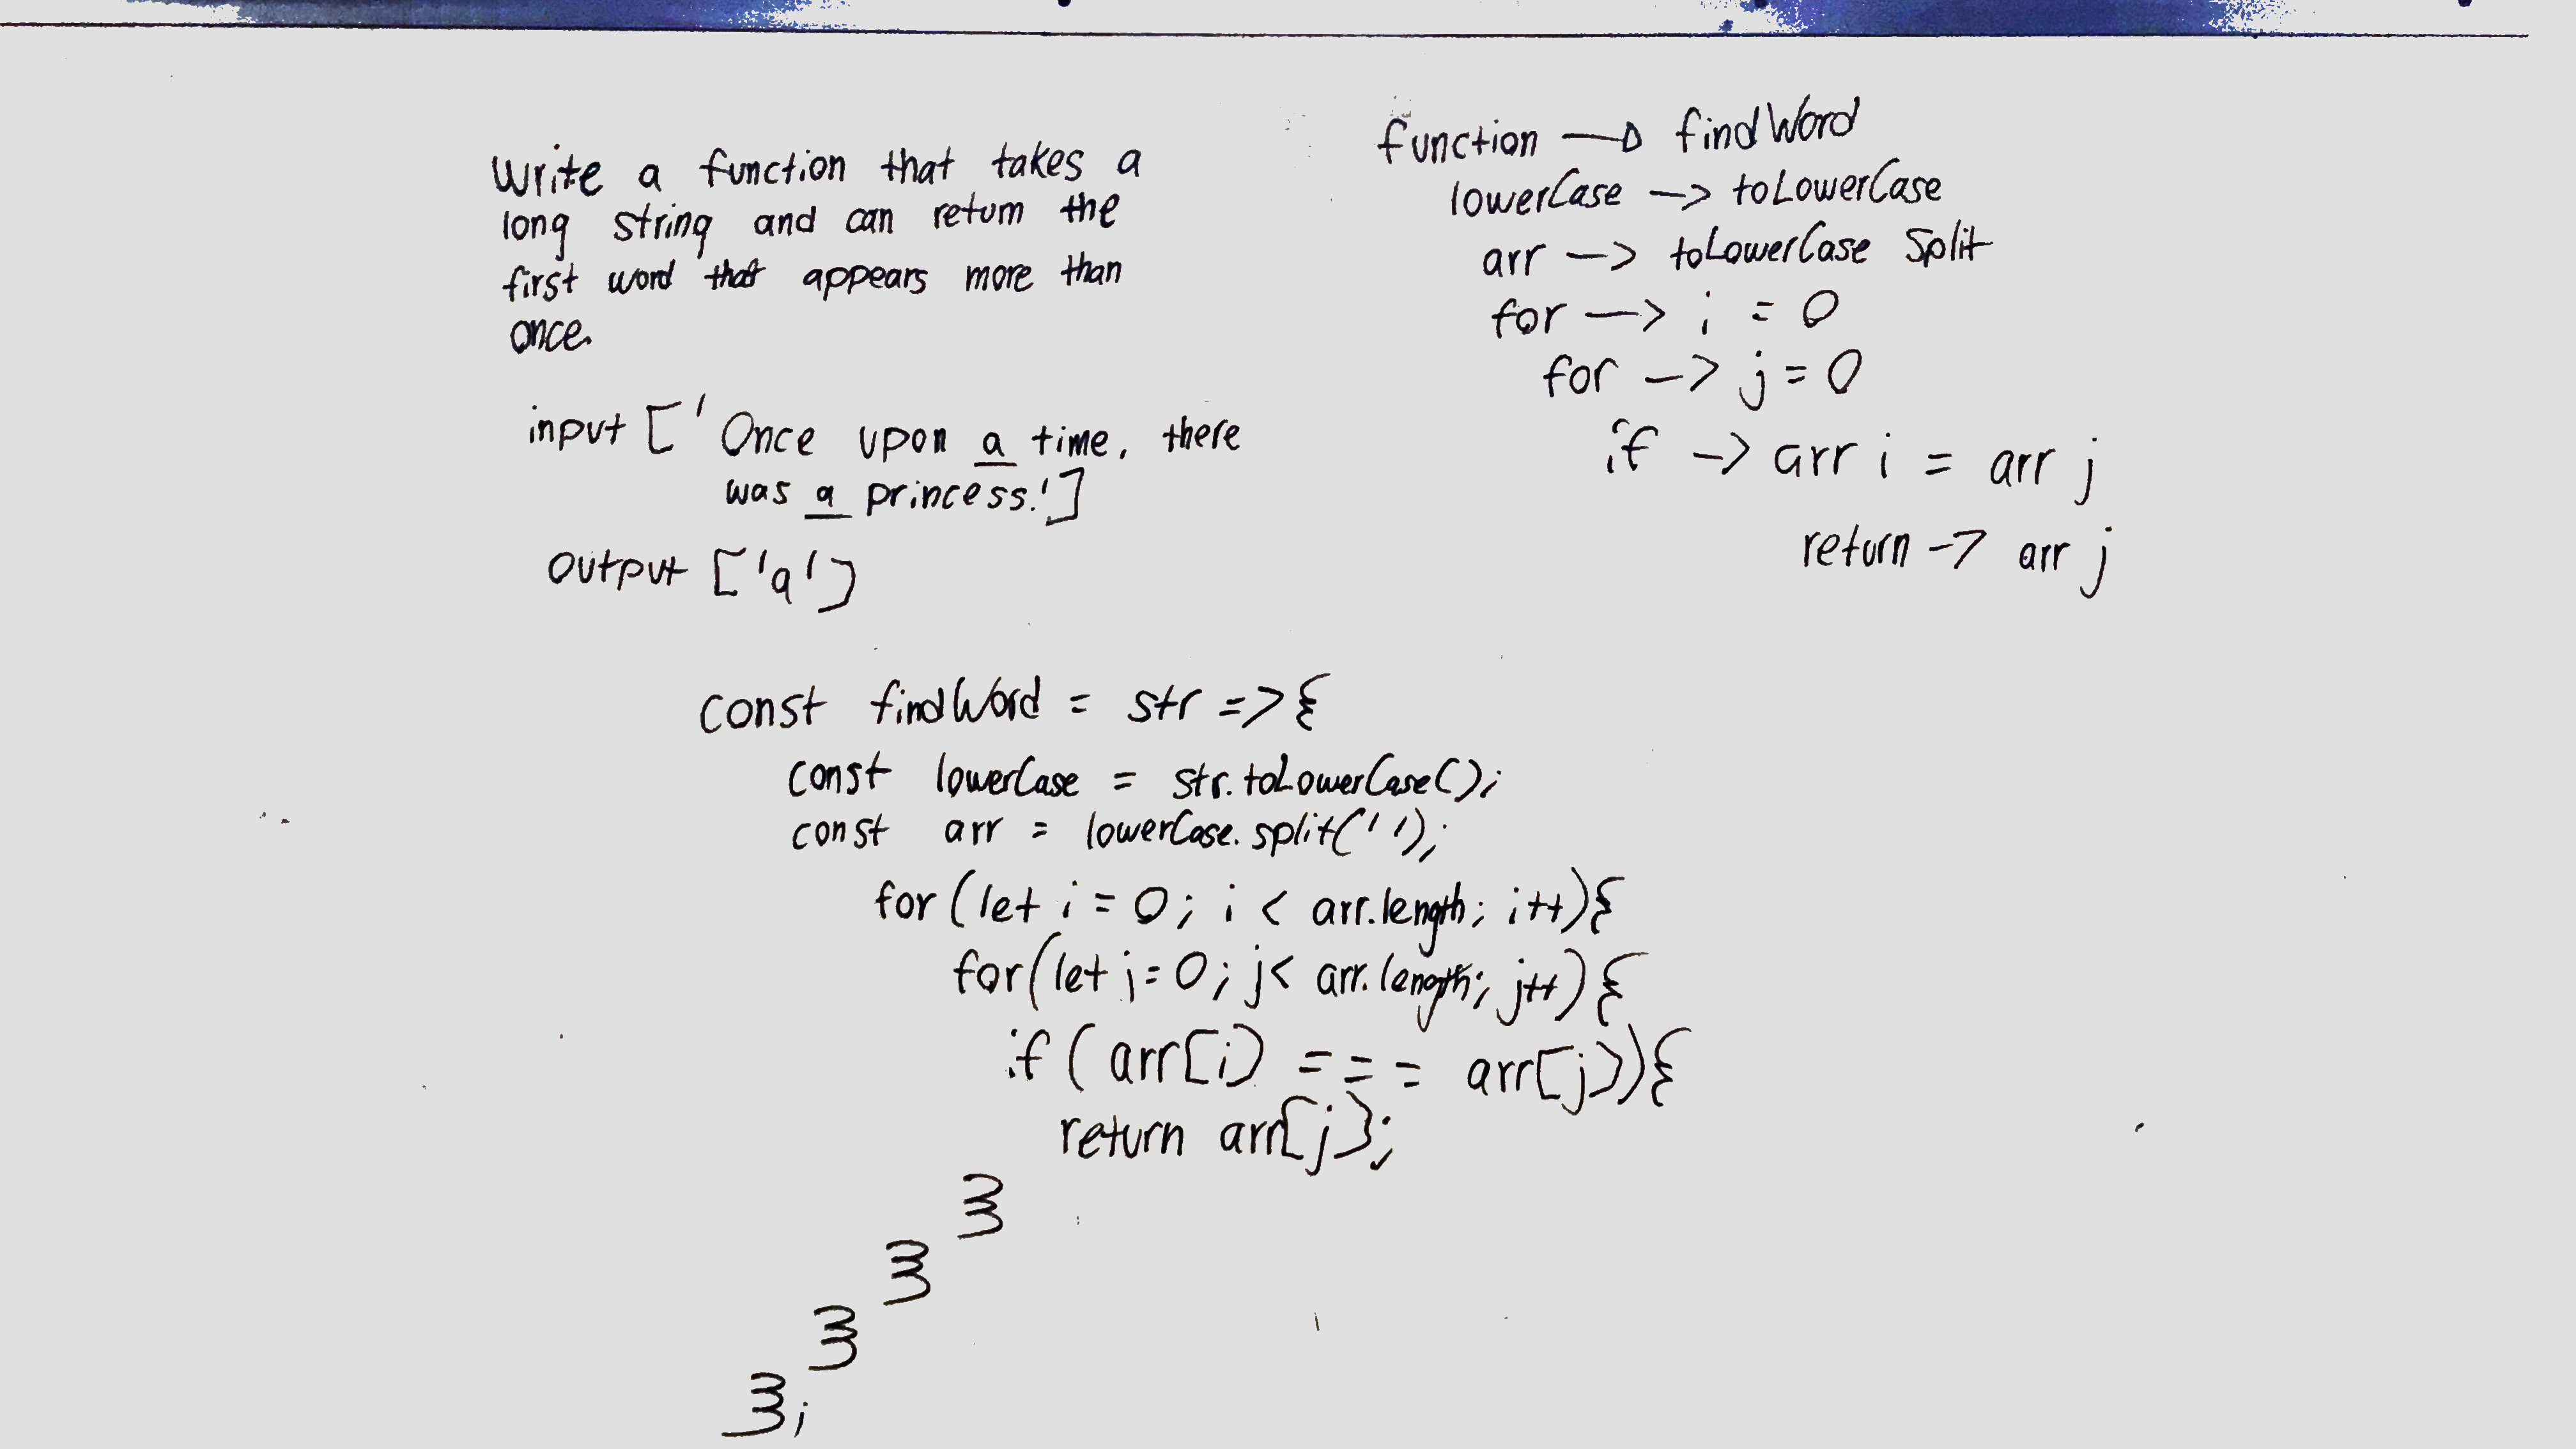 write a function that takes a
long string and can return the
first word that appears more than
once.
input ['Once upon a time, there
was a princess.']
output ['a']
function —▷ findWord
lowerCase —> toLowerCase
arr —> toLowerCase Split
for —> i = 0
for —> j = 0
if -> arr i = arr j
return -> arr j
const findWord = str => {
const lowerCase = str.toLowerCase();
const arr = lowerCase.split(' ');
for (let i = 0; i < arr.length; i++){
for(let j=0; j< arr.length; j++){
if (arr[i] === arr[j]){
return arr[j];
}
}
}
};